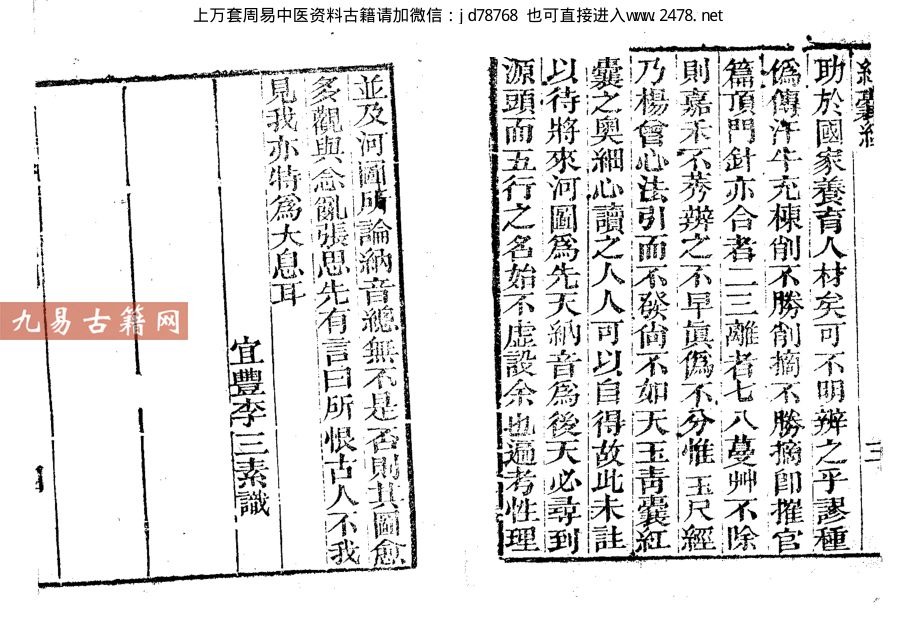 上万套周易中医资料古籍请加微信：jd78768 也可直接进入www.2478.net
紅囊經
助於國家養育人材矣可不明辨之乎謬種
僞傳汗牛充棟削不勝削摘不勝摘卽摧官
篇頂門針亦合者二三離者七八蔓艸不除
則嘉禾不莠辨之不早眞僞不分惟玉尺經
乃楊曾心法引而不發尙不如天玉靑囊紅
囊之奧細心讀之人人可以自得故此未註
以待將來河圖爲先天納音爲後天必尋到
源頭而五行之名始不虛設余也遍考性理
三
並及河圖所論納音總無不是否則其圖愈
多觀與念亂張思先有言曰所恨古人不我
見我亦特爲大息耳
宜豐李三素識
九易古籍网